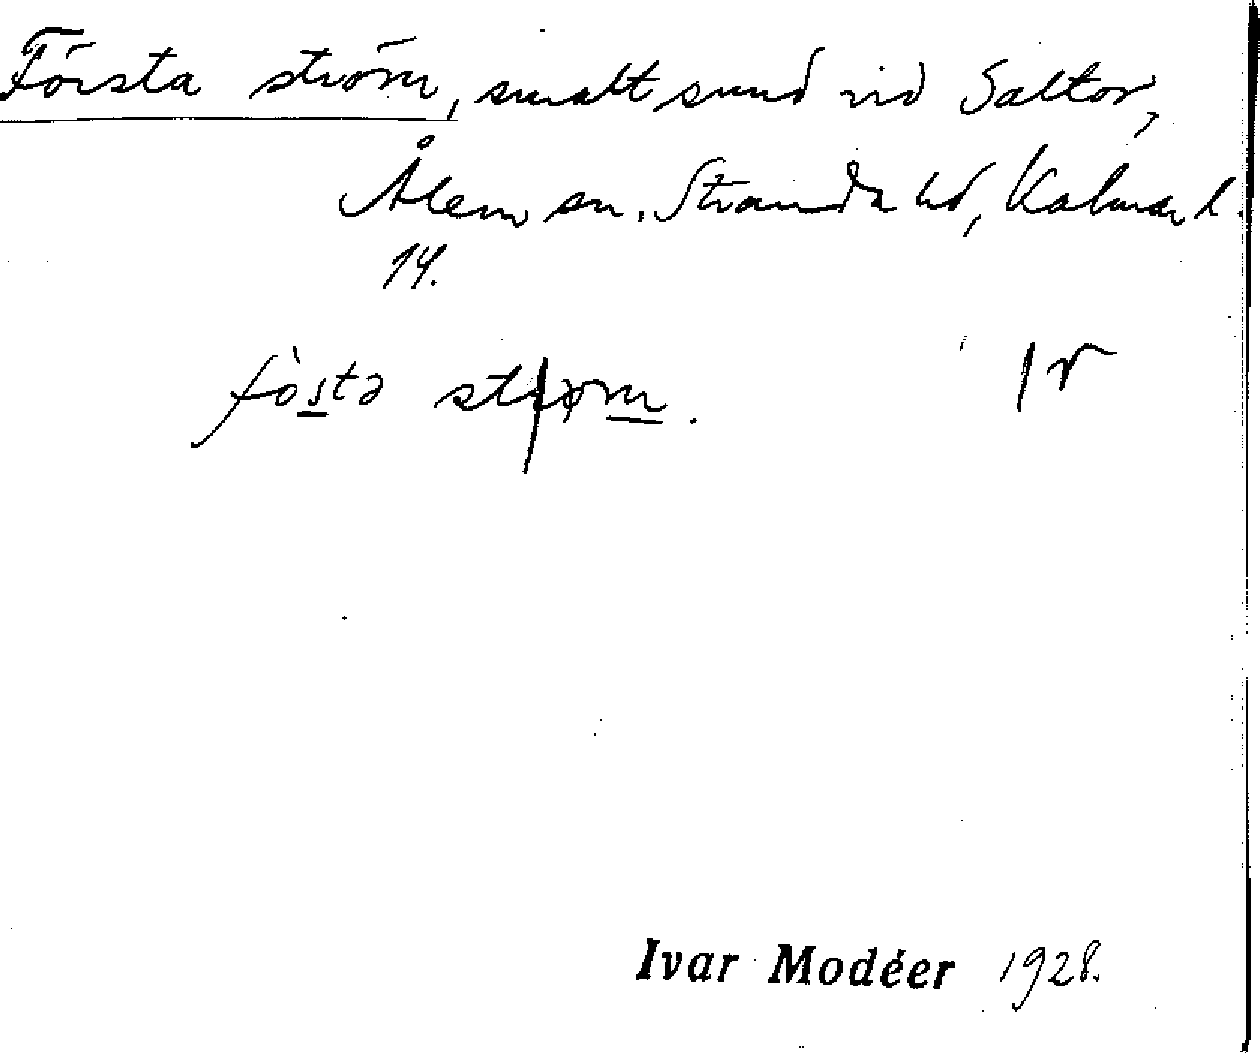 Första ström, smalt sund vid Saltor,
Ålem sn. Stranda hd, Kalmar l.
14.
fòstə strøm. | r
Ivar Modéer 1928.